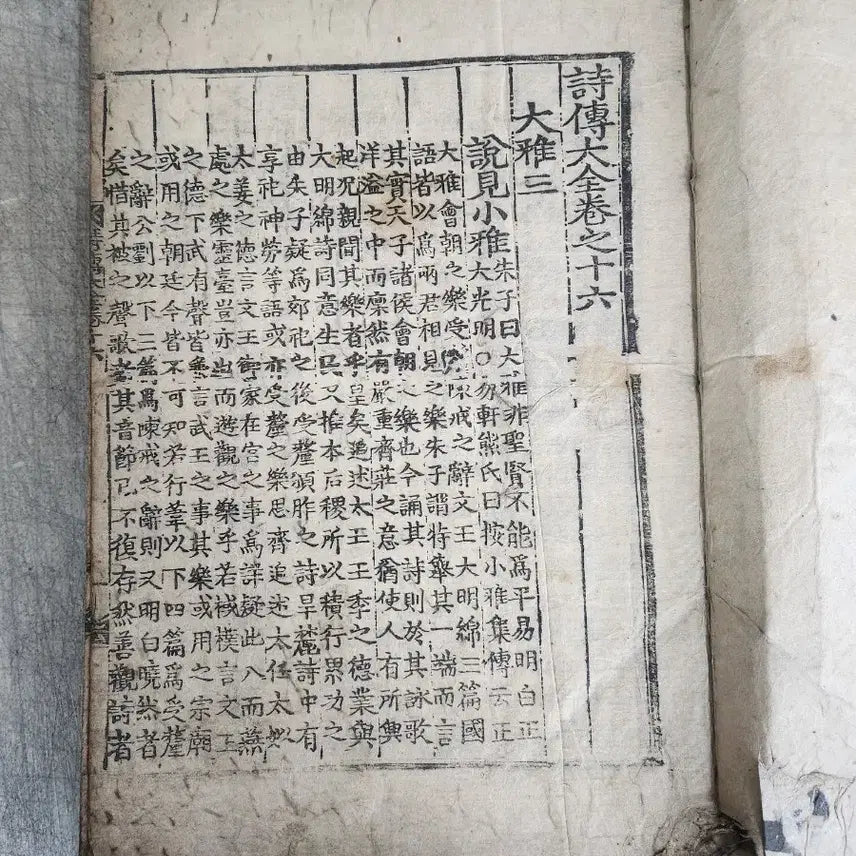 詩傳大全卷之十六
大雅三
說見小雅朱子曰大雅非聖賢不能爲平易明白正
大光明○勿軒熊氏曰按小雅集傳云正
大雅會朝之樂受釐陳戒之辭文王大明綿三篇國
語皆以爲兩君相見之樂朱子謂特舉其一端而言
其實天子諸侯會朝之樂也今誦其詩則於其詠歌
洋溢之中而廩然有嚴重齊莊之意猶使人有所興
起况親聞其樂者乎皇矣追述太王王季之德業與
大明綿詩同意生民又推本后稷所以積行累功之
由朱子疑爲郊祀之後受釐頒胙之詩旱麓詩中有
享祀神勞等語或亦受釐之樂思齊追述太任太姒
太姜之德言文王刑家在宮之事爲詳疑此八而燕
處之樂靈臺豈亦出而遊觀之樂乎若棫樸言文王
之德下武有聲皆兼言武王之事其樂或用之宗廟
或用之朝廷今皆不可知若行葦以下四篇爲受釐
之辭公劉以下三篇爲陳戒之辭則又明白曉然者
矣惜其被之聲歌者其音節已不復存然善觀詩者